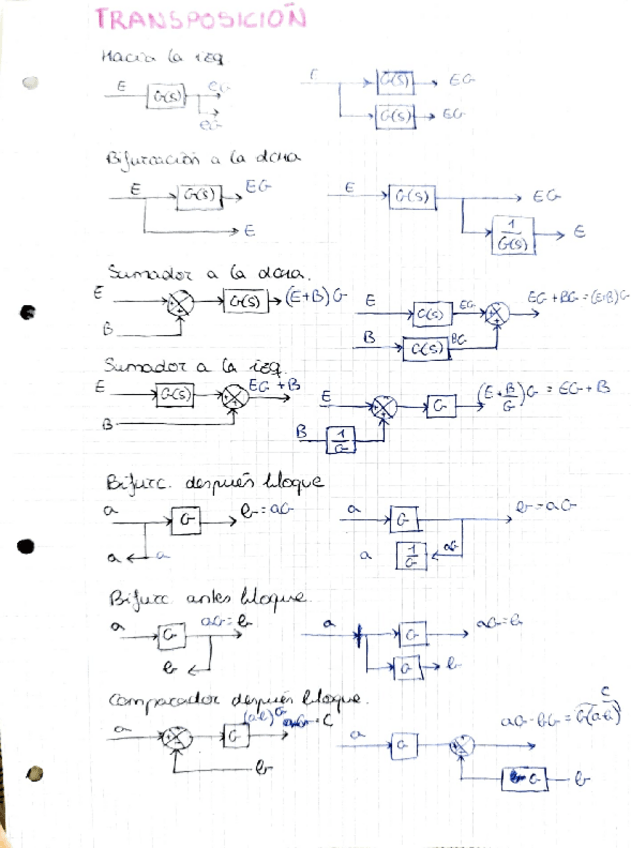 TRANSPOSICIÓN
Hacia la izq
E G(s) EG EG
E G(s) EG
G(s) EG
Bifurcación a la dcha
E G(s) EG
E
E G(s) EG
1/G(s) E
Sumador a la dcha.
E G(s) (E+B)G
B
E G(s) EG EG+BG=(E+B)G
B G(s) BG
Sumador a la izq.
E G(s) EG+B
B
E G (E+B/G)G = EG+B
B 1/G
Bifurc. después bloque
a G b=aG
a a
a G b=aG
a 1/G aG
Bifurc antes bloque.
a G aG=b
b
a G aG=b
G b
Comparador después bloque.
a G C
b
a G aG-bG = G(a-b) C
G b